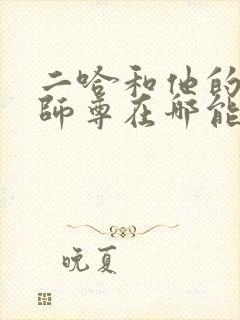 二哈和他的
師尊在哪能
晚夏